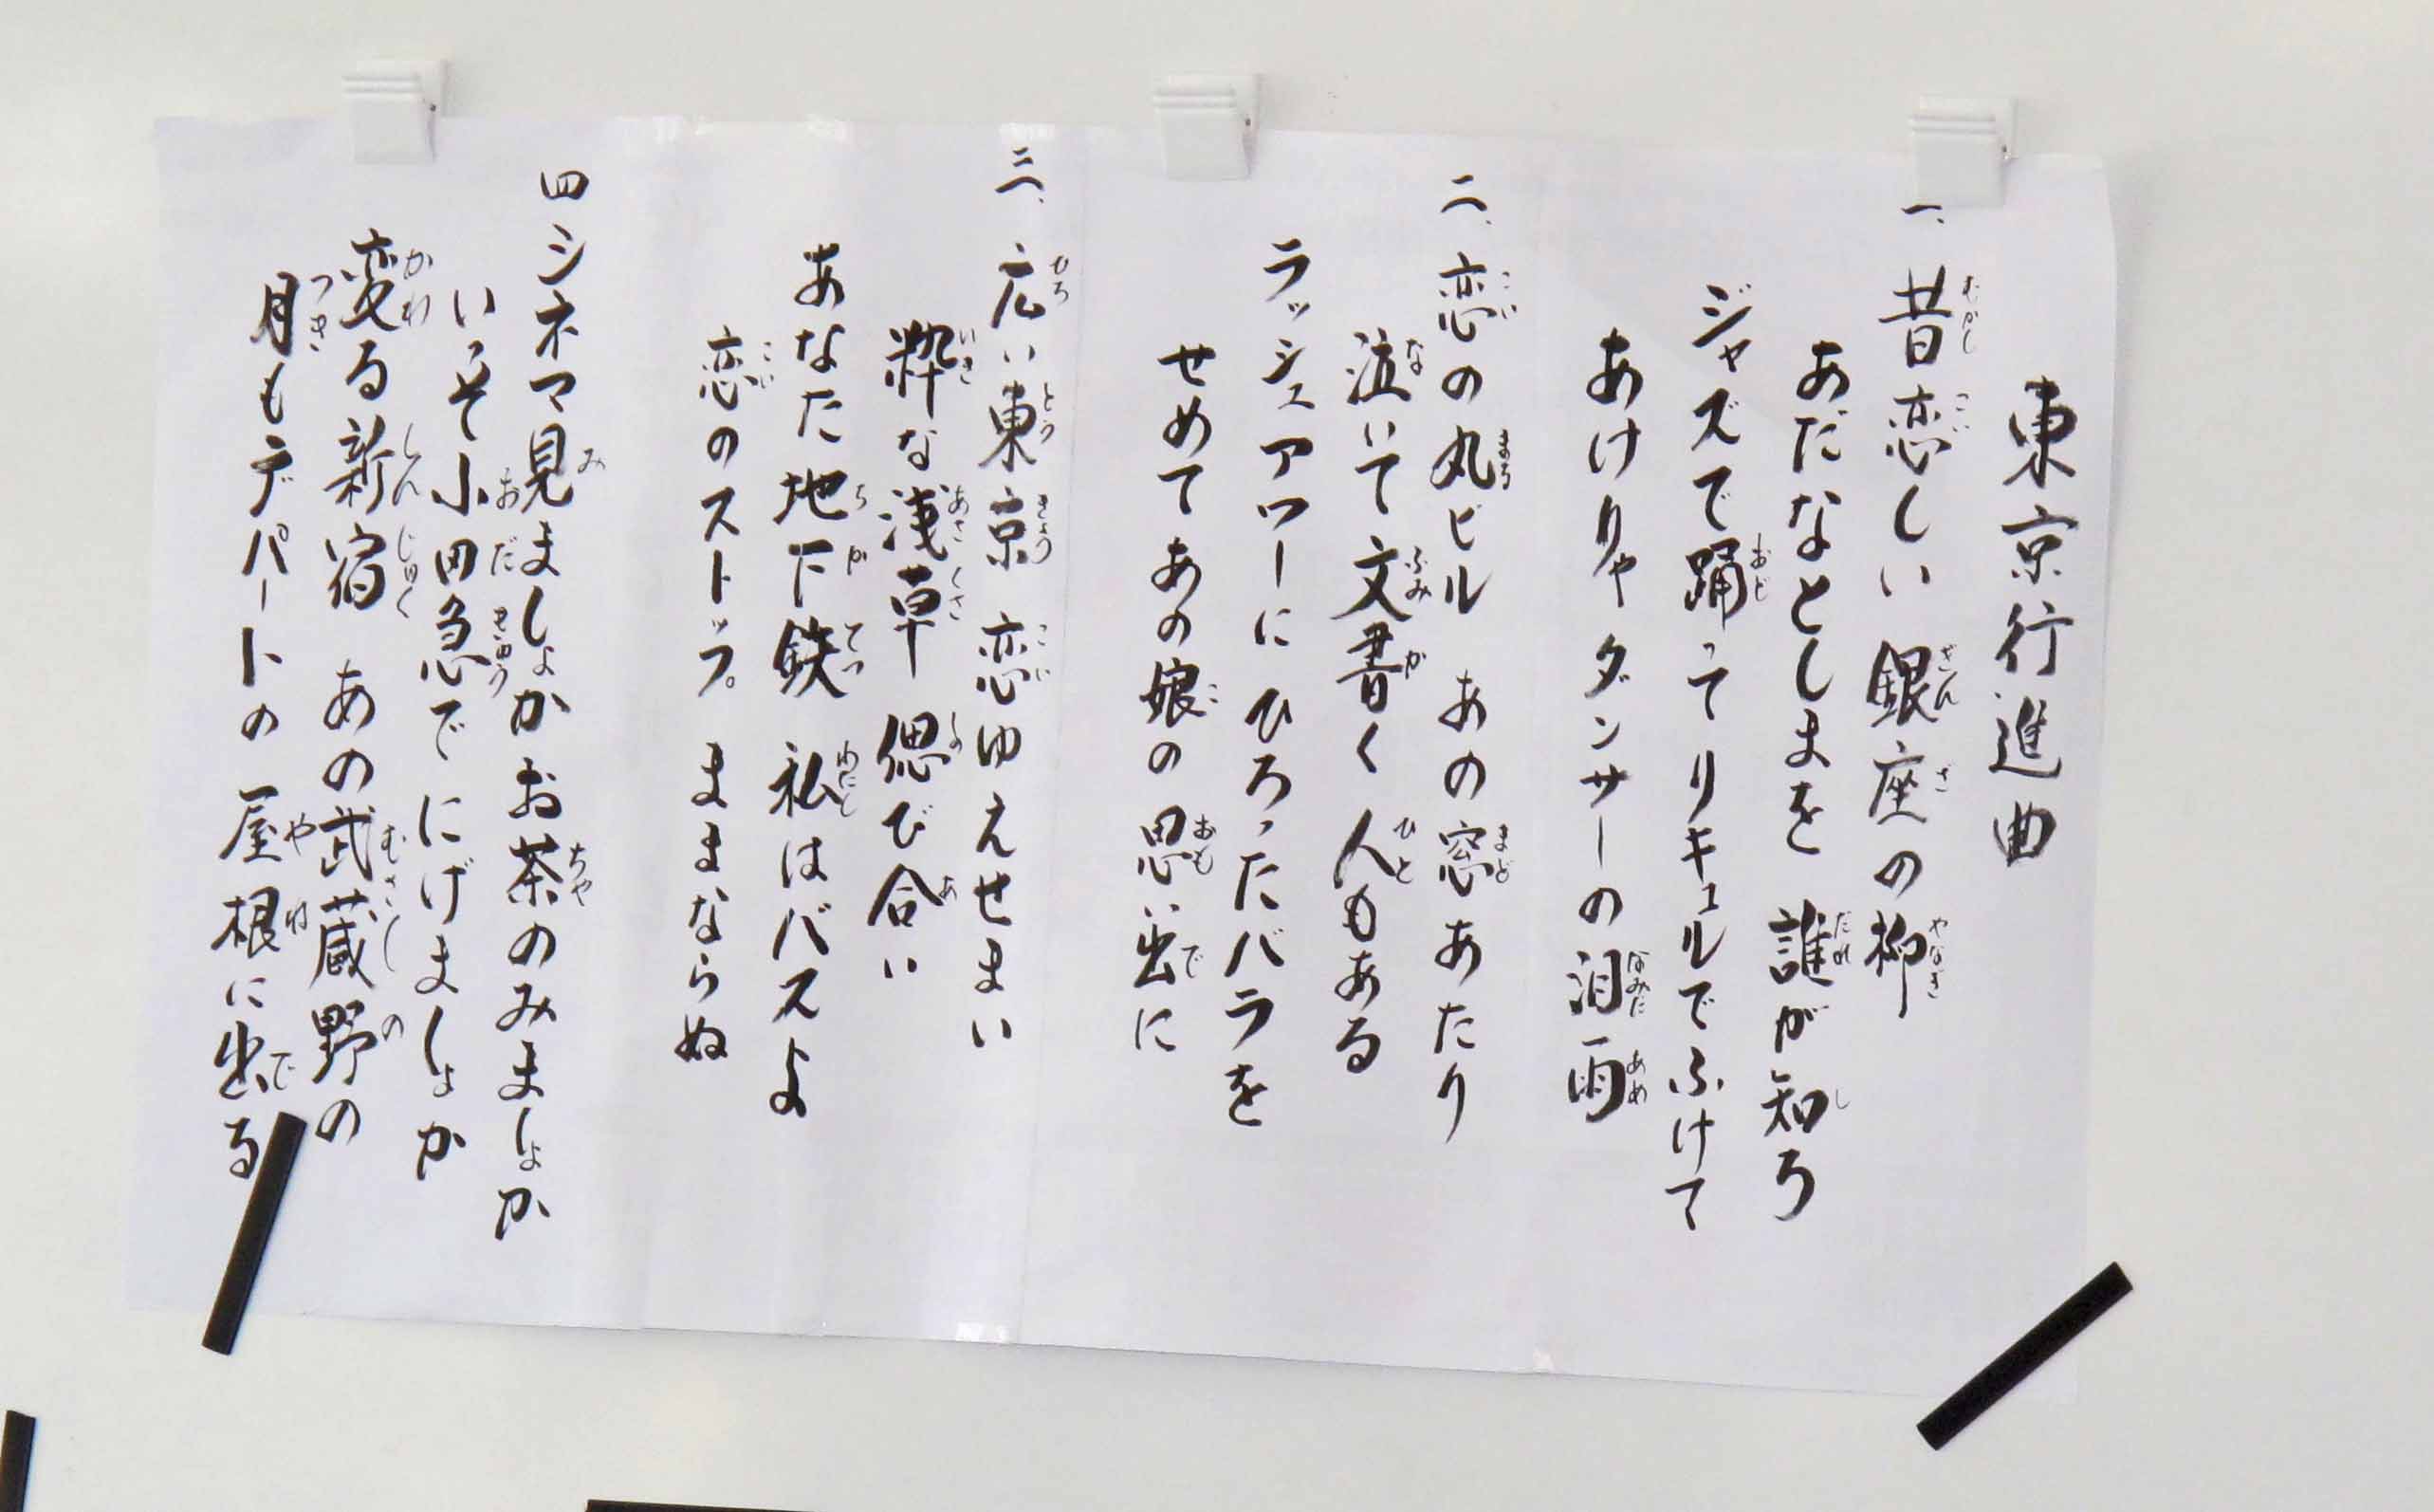 東京行進曲
一、昔恋しい 銀座の柳
あだなとしまを 誰が知ろう
ジャズで踊って リキュルでふけて
あけりゃ ダンサーの 泪雨
二、恋の丸ビル あの窓あたり
泣いて文書く 人もある
ラッシュアワーに ひろったバラを
せめて あの娘の 思い出に
三、広い東京 恋ゆえせまい
粋な浅草 偲び合い
あなた地下鉄 私はバスよ
恋のストップ ままならぬ
四 シネマ見ましょか お茶のみましょか
いっそ小田急で にげましょか
変る新宿 あの武蔵野の
月もデパートの 屋根に出る